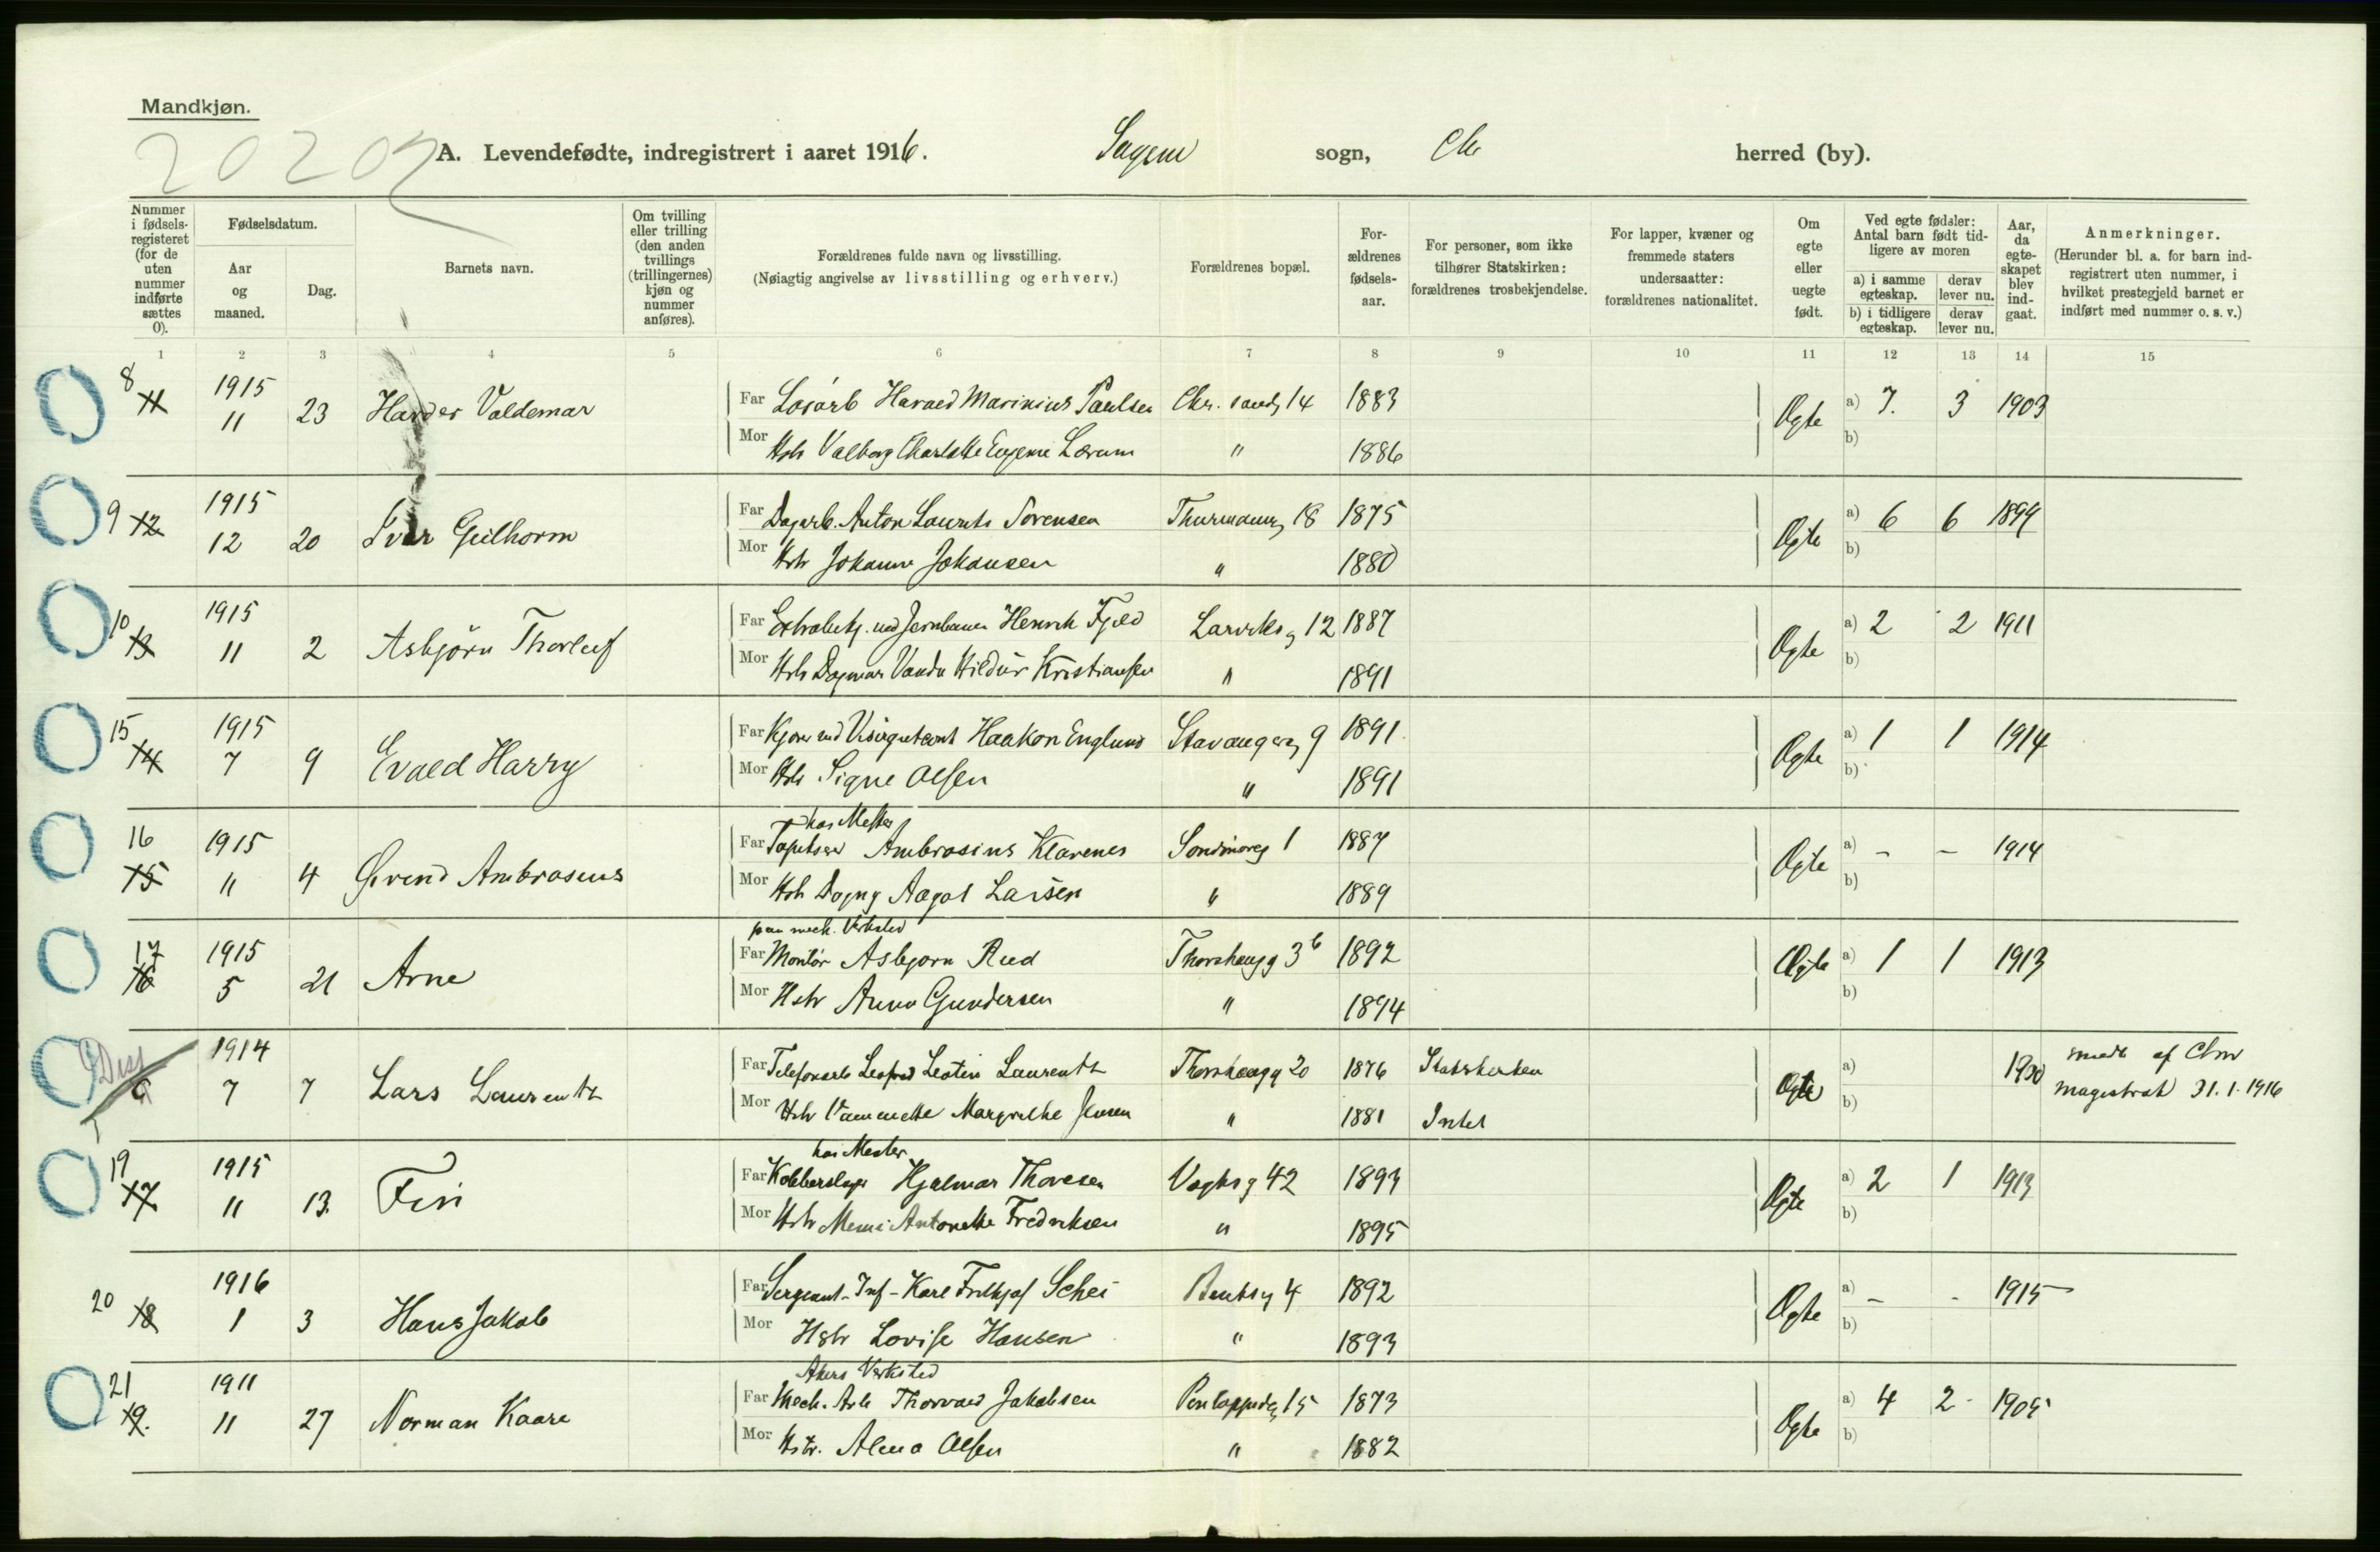 Mandkjøn.
20202
A. Levendefødte, indregistrert i aaret 1916. Sagene sogn, Chr herred (by).
Nummer i fødselsregisteret (for de uten nummer indførte sættes 0).
Fødselsdatum.
Aar og maaned.
Dag.
Barnets navn.
Om tvilling eller trilling (den anden tvillings (trillingernes) kjøn og nummer anføres).
Forældrenes fulde navn og livsstilling.
(Nøiagtig angivelse av livsstilling og erhverv.)
Forældrenes bopæl.
Forældrenes fødselsaar.
For personer, som ikke tilhører Statskirken: forældrenes trosbekjendelse.
For lapper, kvæner og fremmede staters undersaatter: forældrenes nationalitet.
Om egte eller uegte født.
Ved egte fødsler: Antal barn født tidligere av moren
a) i samme egteskap.
derav lever nu.
b) i tidligere egteskap.
derav lever nu.
Aar, da egteskapet blev indgaat.
Anmerkninger.
(Herunder bl. a. for barn indregistrert uten nummer, i hvilket prestegjeld barnet er indført med nummer o. s. v.)
1 2 3 4 5 6 7 8 9 10 11 12 13 14 15
8 11 1915 11 23 Valdemar Far Marinius Paulsen 14 1883 Ægte a) 7. 3 1903
Mor Valborg Charlotte " 1886 b)
9 12 1915 12 20 Ivar Far Dagarb. Anton Laurits Sørensen 18 1875 Ægte a) 6 6 1899
Mor Hstr Johanne Johansen " 1880 b)
10 13 1915 11 2 Asbjørn Thorleif Far Henrik 12 1887 Ægte a) 2 2 1911
Mor Hstr Dagmar Hildur Kristiansen " 1891 b)
15 14 1915 7 9 Evald Harry Far Haakon Englund Stavangerg 9 1891 Ægte a) 1 1 1914
Mor Hstr Signe Olsen " 1891 b)
hos Mester
16 15 1915 11 4 Øivind Ambrosius Far Tapetserer Ambrosius Klavenes 1 1887 Ægte a) - - 1914
Mor Hstr Dagny Aagot Larsen " 1889 b)
paa mech. Verksted
17 16 1915 5 21 Arne Far Montør Asbjørn Rud Thorshaugg 3b 1892 Ægte a) 1 1 1913
Mor Hstr Anna Gundersen " 1894 b)
Diss 0 1914 7 7 Lars Laurentz Far Laurentz Thorshaugg 20 1876 Statskirken Ægte a) 1900 af Chr
Mor Hstr Margrethe Jensen " 1881 Intet b) magistrat 31.1.1916
hos Mester
19 17 1915 11 13. Finn Far Kobberslager Hjalmar Thoresen Vogtsg 42 1893 Ægte a) 2 1 1913
Mor Hstr Antonette Fredriksen " 1895 b)
20 18 1916 1 3 Hans Jakob Far Sergeant-Inf- Fridtjof Schei Bentsg 4 1892 Ægte a) - - 1915
Mor Hstr Lovise Hansen " 1893 b)
Akers Verksted
21 19. 1911 11 27 Norman Kaare Far Mech. Arb Thorvald Jakobsen 15 1873 Ægte a) 4 2 1905
Mor Hstr. Alma Olsen " 1882 b)